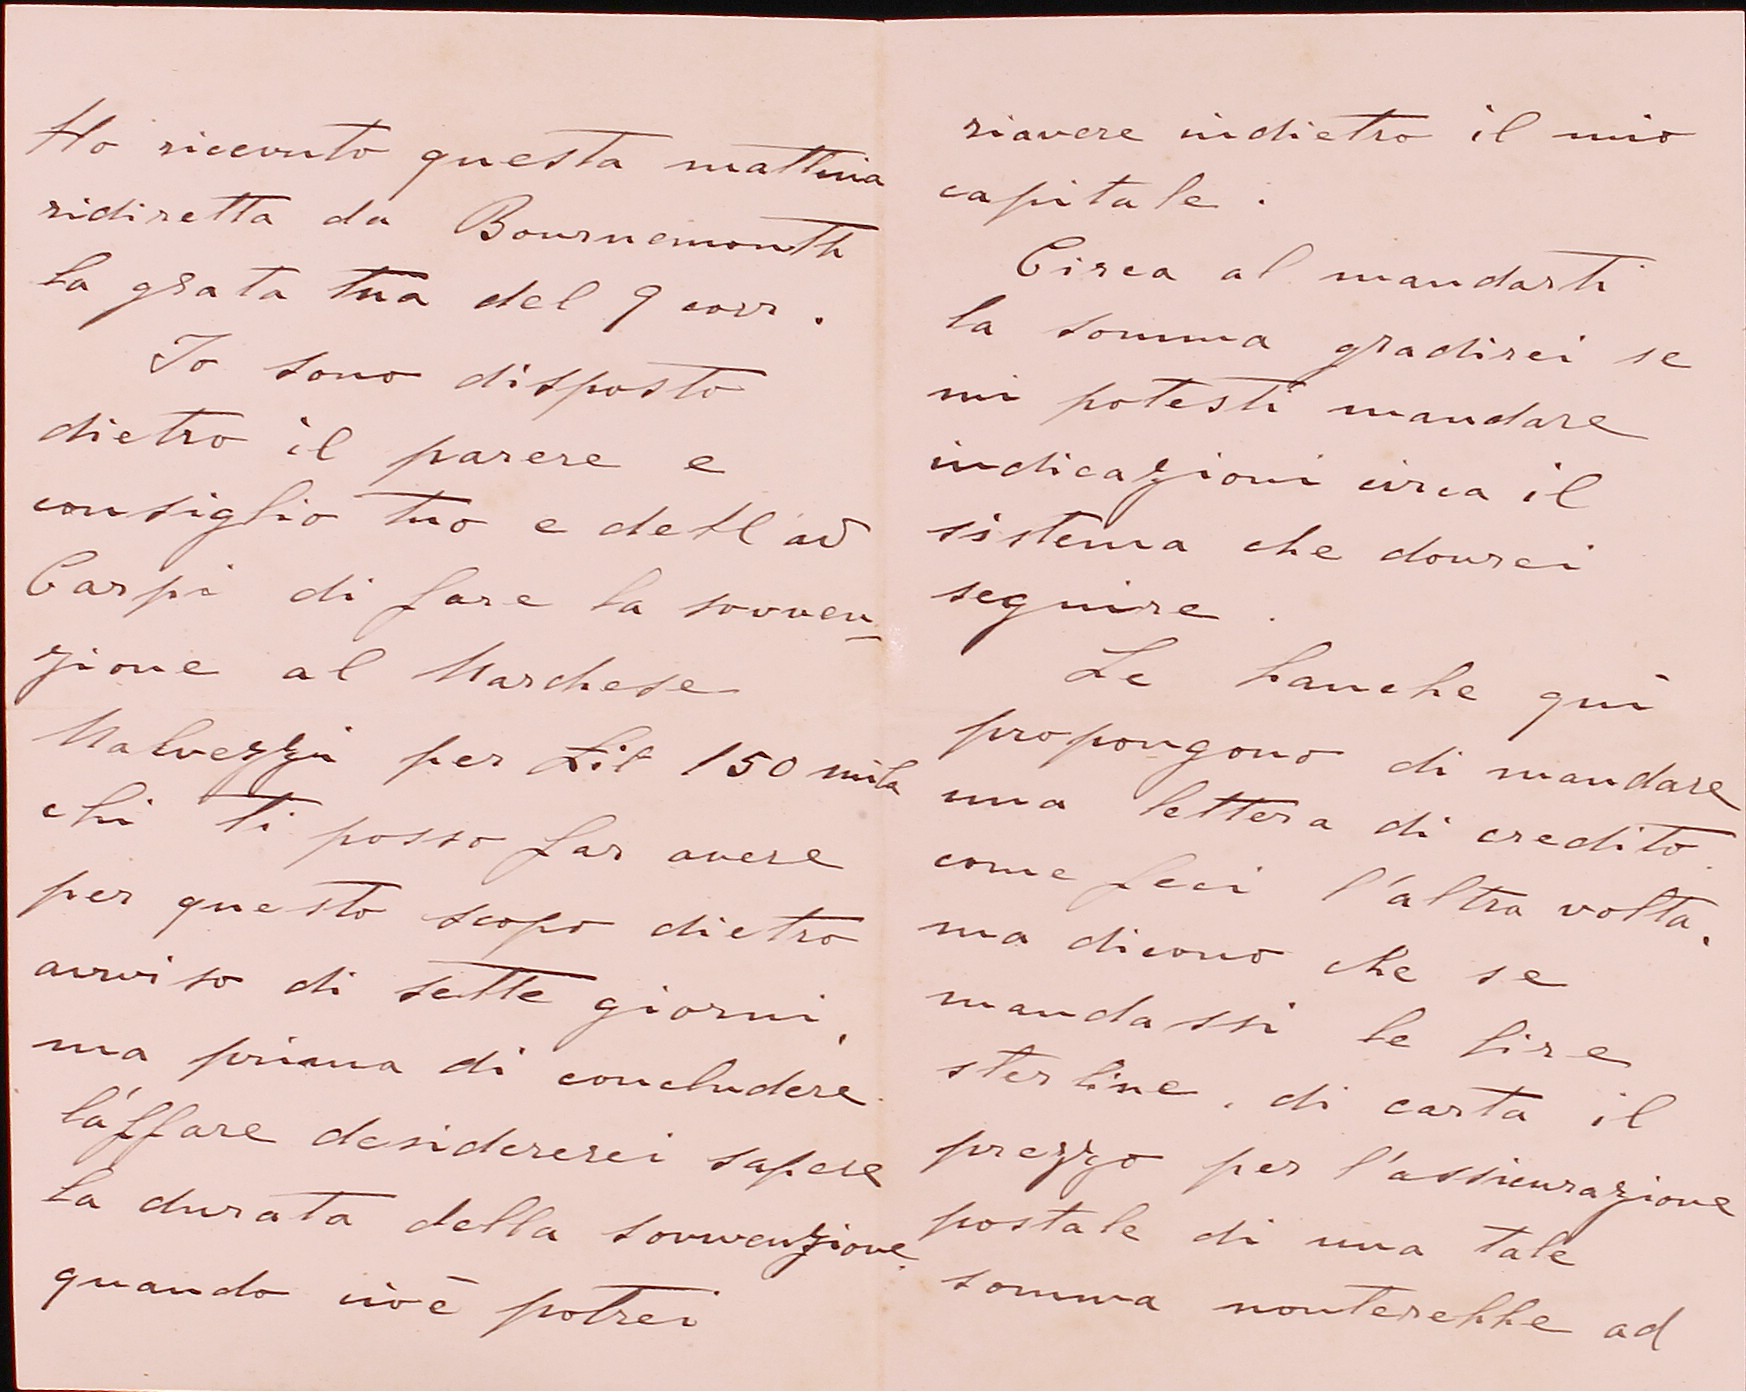 Ho ricevuto questa mattina
ridiretta da Bournemouth
la grata tua del 9 corr.
Io sono disposto
dietro il parere e
consiglio tuo e dell'av
Carpi di fare la sovven-
zione al Marchese
Malvezzi per Lit 150 mila
chi ti posso far avere
per questo scopo dietro
avviso di sette giorni,
ma prima di concludere
l'affare desidererei sapere
la durata della sovvenzione
quando cioè potrei
riavere indietro il mio
capitale.
Circa al mandarti
la somma gradirei se
mi potesti mandare
indicazioni circa il
sistema che dovrei
seguire.
Le banche qui
propongono di mandare
una lettera di credito
come feci l'altra volta.
ma dicono che se
mandassi le lire
sterline, di carta il
prezzo per l'assicurazione
postale di una tale
somma monterebbe ad